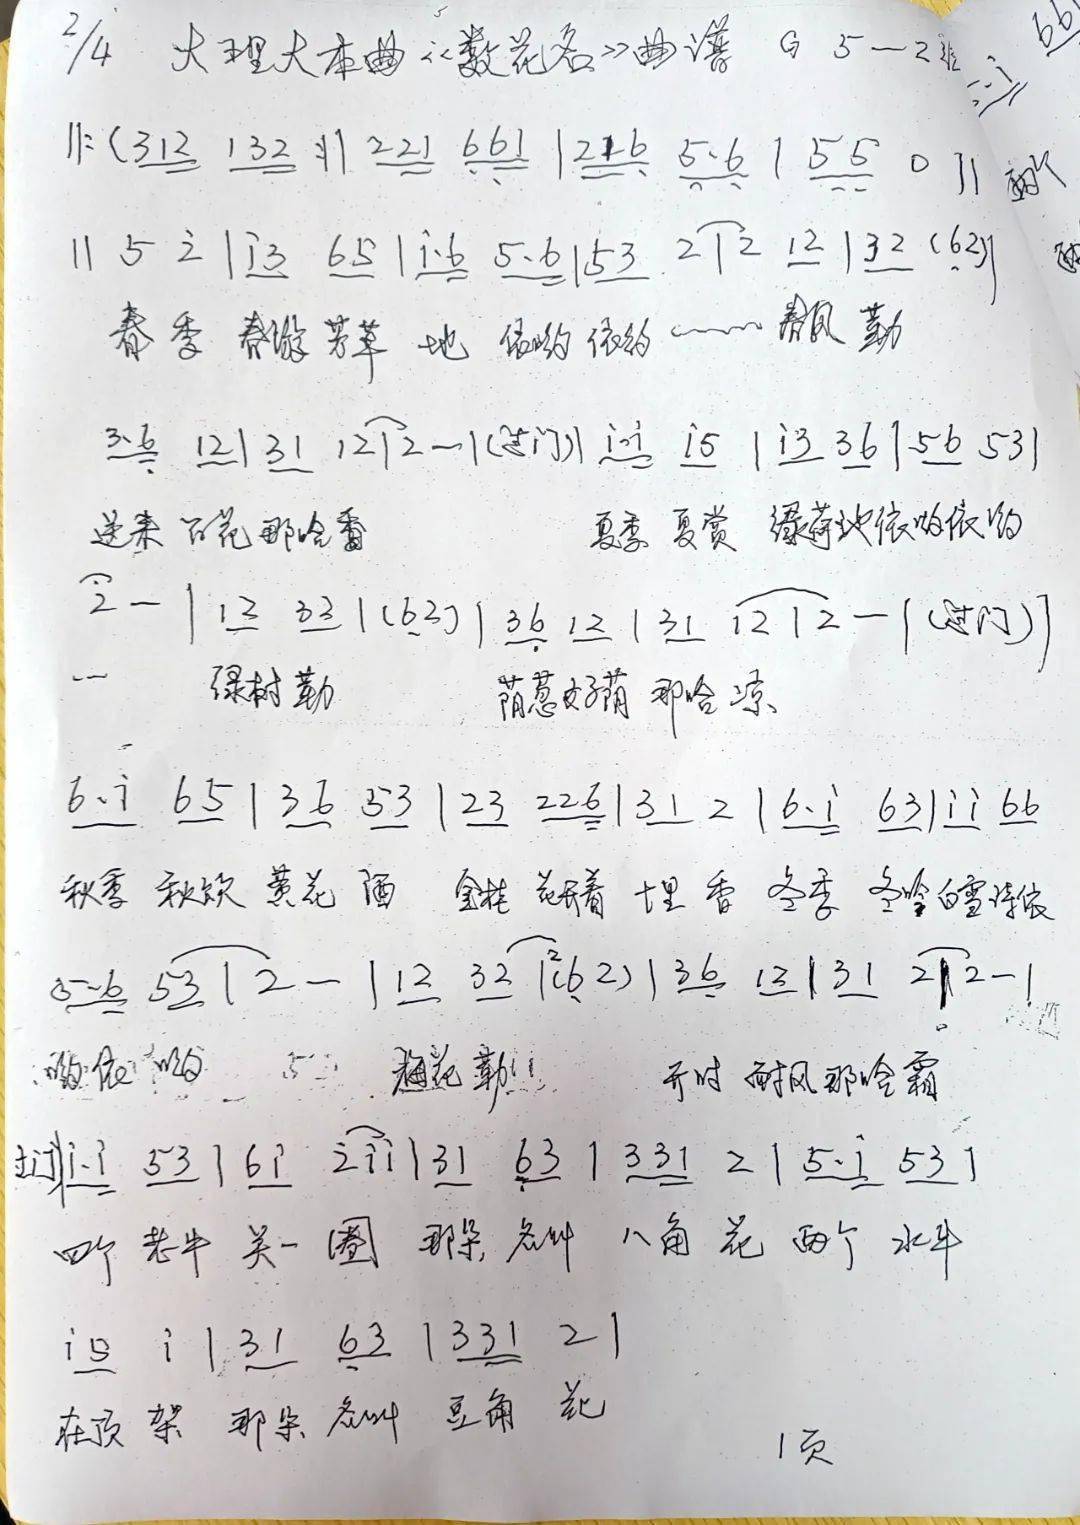 2/4 大理大本曲《数花名》曲谱 G 5—2弦
‖:(312 132 :‖ 221 661 | 216 5·6 | 55 0 ‖
‖ 5 i | i3 65 | i·6 5·6 | 53 2 | 2 12 | 32 (62) |
春季 春游 芳草 地 依哟 依哟 春风 勤
3·6 12 | 31 12 | 2 — | (过门) | i·i i5 | i3 36 | 56 53 |
送来 百花 那哈香 夏季 夏赏 绿荷池依哟依哟
2 — | 12 32 | (62) | 36 12 | 31 12 | 2 — | (过门) |
绿树勤 荫葱好荫 那哈凉
6·i 65 | 36 53 | 23 226 | 31 2 | 6·i 63 | ii 66
秋季 秋饮 黄花 酒 金桂 花开着 十里 香 冬季 冬吟 白雪诗依
5·6 53 | 2 — | 12 32 | (62) | 36 12 | 31 2 | 2 — |
哟依 哟 梅花 勤 开时 耐风 那哈霜
过门 | i·i 53 | 6i 2ii | 31 63 | 331 2 | 5·i 53 |
四个 老牛 关一 圈 那朵 名叫 八角 花 两个 水牛
i5 i | 31 63 | 331 2 |
在顶 架 那朵 名叫 豆角 花
1页